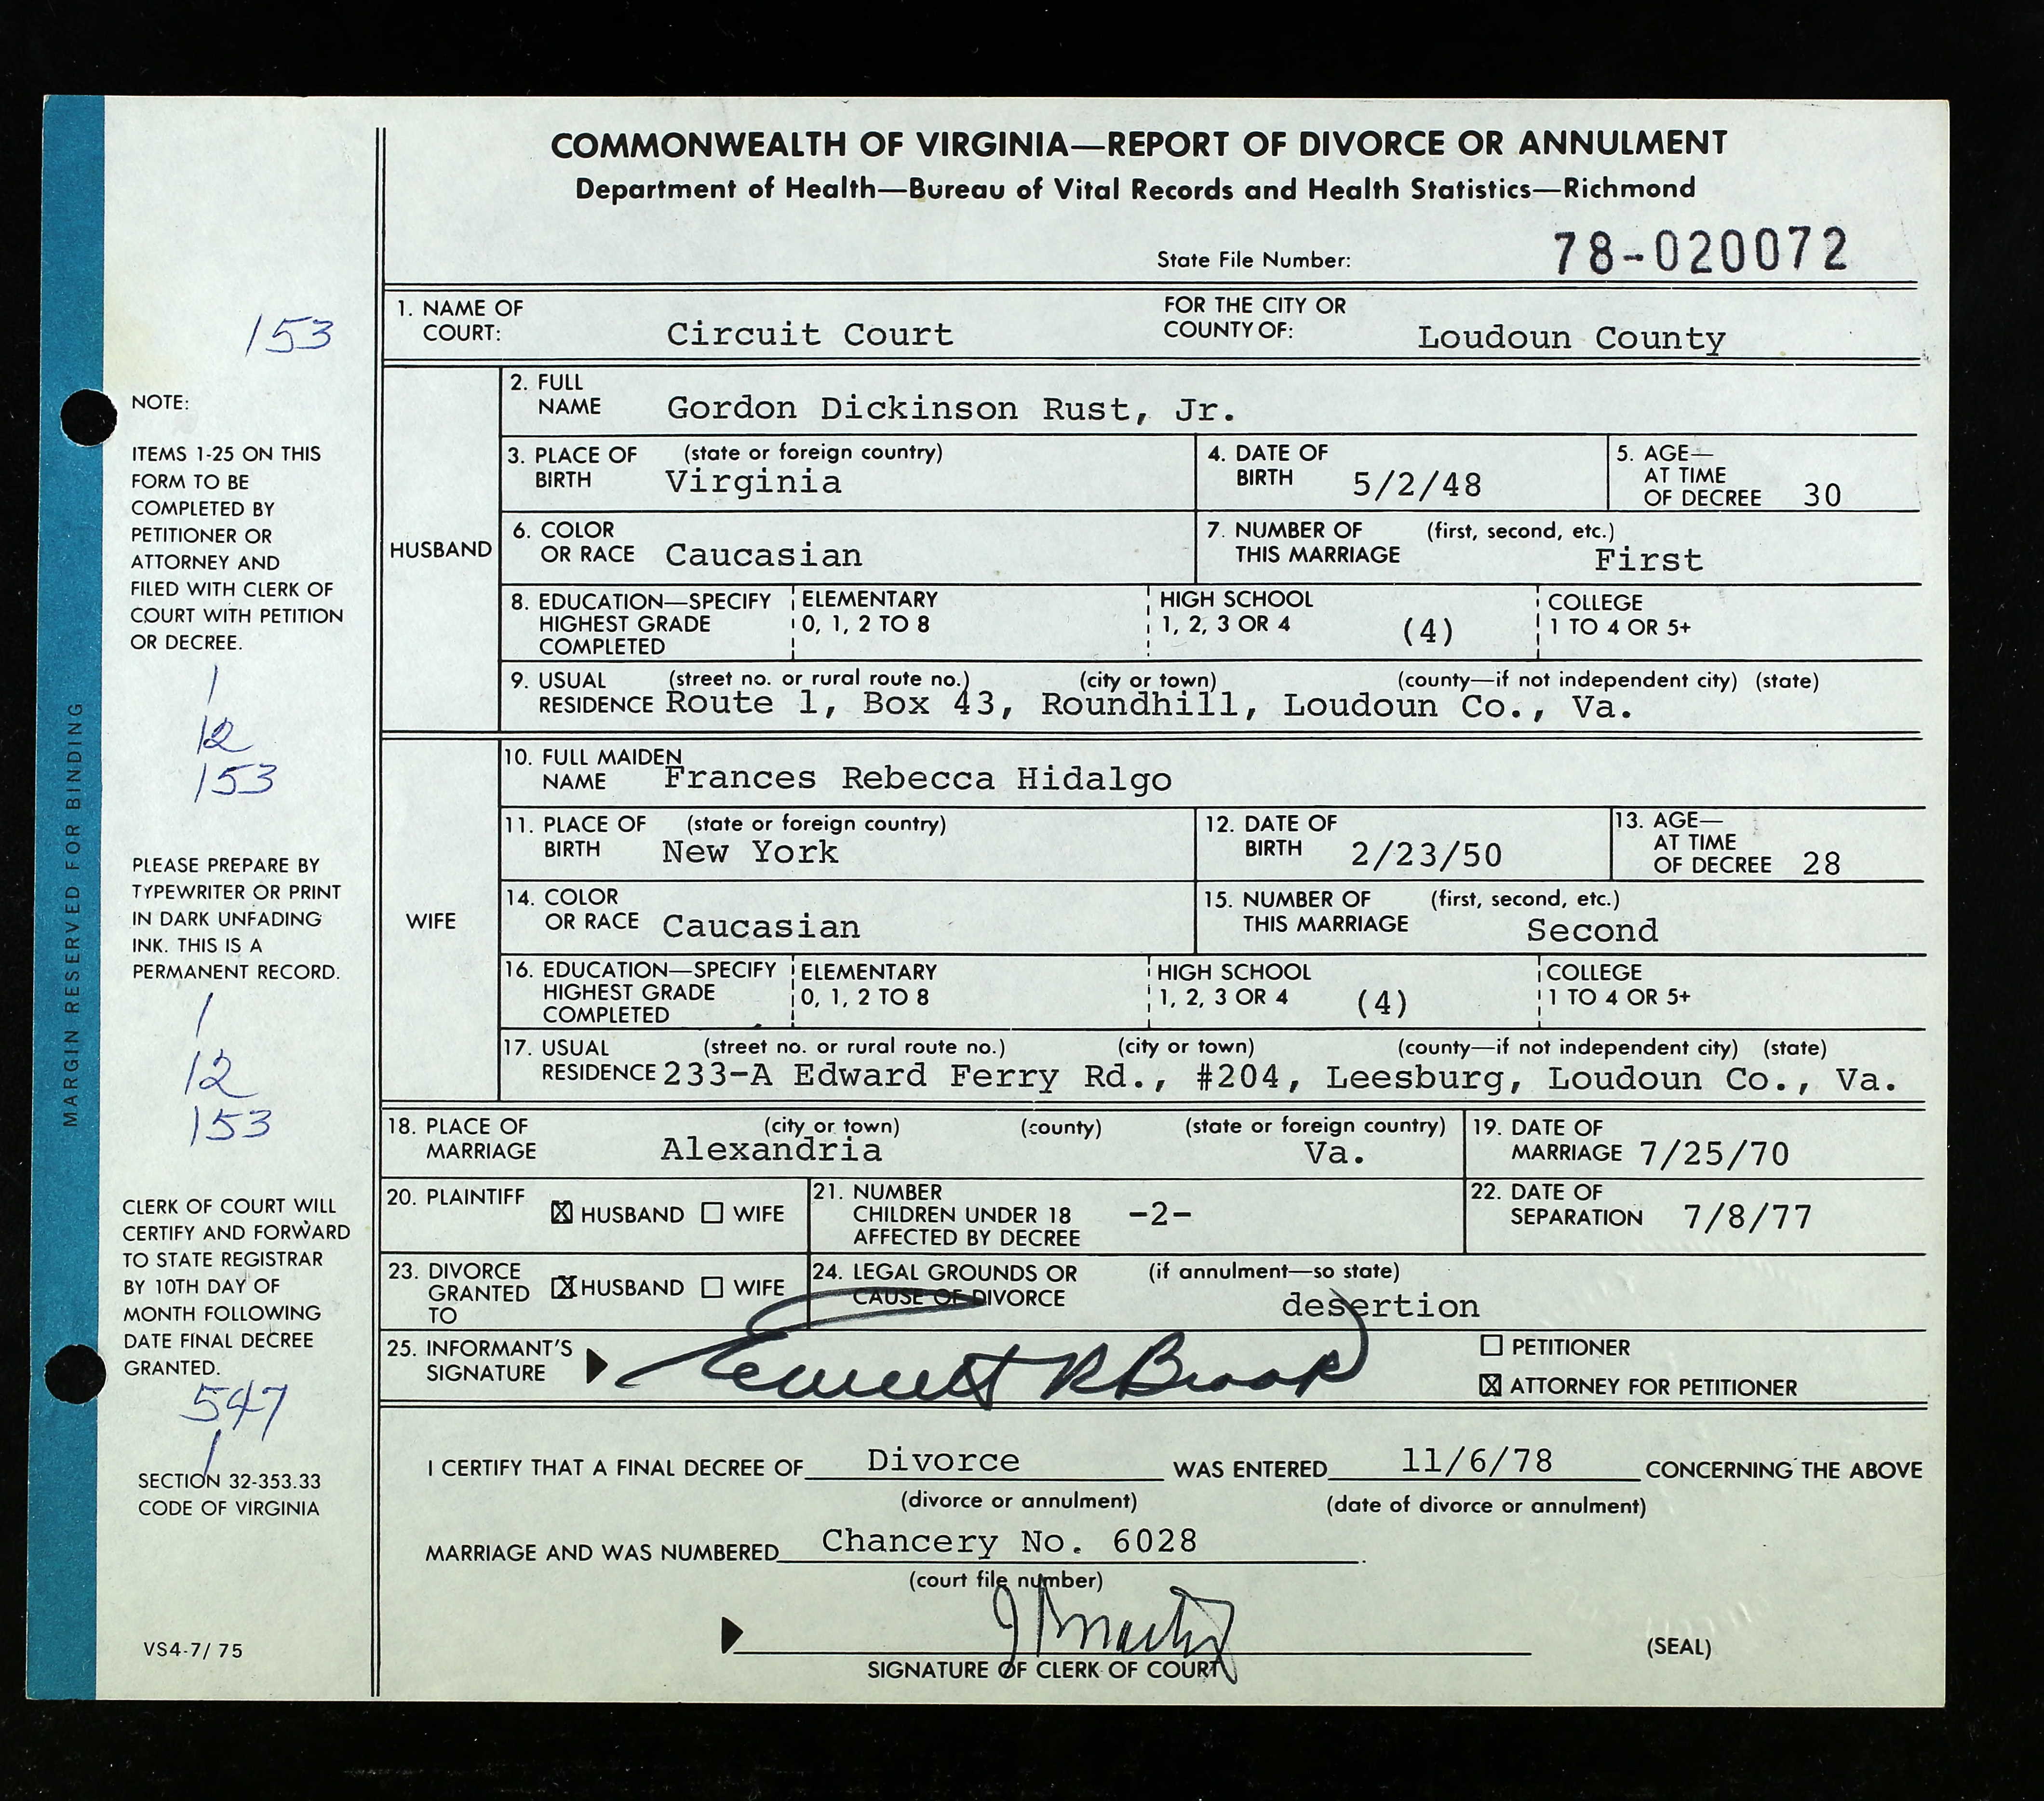 COMMONWEALTH OF VIRGINIA—REPORT OF DIVORCE OR ANNULMENT
Department of Health—Bureau of Vital Records and Health Statistics—Richmond
State File Number: 78-020072
153
NOTE:
ITEMS 1-25 ON THIS
FORM TO BE
COMPLETED BY
PETITIONER OR
ATTORNEY AND
FILED WITH CLERK OF
COURT WITH PETITION
OR DECREE.
1
12
153
PLEASE PREPARE BY
TYPEWRITER OR PRINT
IN DARK UNFADING
INK. THIS IS A
PERMANENT RECORD.
1
12
153
CLERK OF COURT WILL
CERTIFY AND FORWARD
TO STATE REGISTRAR
BY 10TH DAY OF
MONTH FOLLOWING
DATE FINAL DECREE
GRANTED.
547
1
SECTION 32-353.33
CODE OF VIRGINIA
VS4-7/75
MARGIN RESERVED FOR BINDING
1. NAME OF COURT: Circuit Court
FOR THE CITY OR COUNTY OF: Loudoun County
HUSBAND
2. FULL NAME Gordon Dickinson Rust, Jr.
3. PLACE OF BIRTH (state or foreign country) Virginia
4. DATE OF BIRTH 5/2/48
5. AGE— AT TIME OF DECREE 30
6. COLOR OR RACE Caucasian
7. NUMBER OF THIS MARRIAGE (first, second, etc.) First
8. EDUCATION—SPECIFY HIGHEST GRADE COMPLETED
ELEMENTARY 0, 1, 2 TO 8
HIGH SCHOOL 1, 2, 3 OR 4 (4)
COLLEGE 1 TO 4 OR 5+
9. USUAL RESIDENCE (street no. or rural route no.) (city or town) (county—if not independent city) (state)
Route 1, Box 43, Roundhill, Loudoun Co., Va.
WIFE
10. FULL MAIDEN NAME Frances Rebecca Hidalgo
11. PLACE OF BIRTH (state or foreign country) New York
12. DATE OF BIRTH 2/23/50
13. AGE— AT TIME OF DECREE 28
14. COLOR OR RACE Caucasian
15. NUMBER OF THIS MARRIAGE (first, second, etc.) Second
16. EDUCATION—SPECIFY HIGHEST GRADE COMPLETED
ELEMENTARY 0, 1, 2 TO 8
HIGH SCHOOL 1, 2, 3 OR 4 (4)
COLLEGE 1 TO 4 OR 5+
17. USUAL RESIDENCE (street no. or rural route no.) (city or town) (county—if not independent city) (state)
233-A Edward Ferry Rd., #204, Leesburg, Loudoun Co., Va.
18. PLACE OF MARRIAGE (city or town) (county) (state or foreign country)
Alexandria Va.
19. DATE OF MARRIAGE 7/25/70
20. PLAINTIFF ☒ HUSBAND ☐ WIFE
21. NUMBER CHILDREN UNDER 18 AFFECTED BY DECREE -2-
22. DATE OF SEPARATION 7/8/77
23. DIVORCE GRANTED TO ☒ HUSBAND ☐ WIFE
24. LEGAL GROUNDS OR CAUSE OF DIVORCE (if annulment—so state) desertion
25. INFORMANT'S SIGNATURE
☐ PETITIONER
☒ ATTORNEY FOR PETITIONER
I CERTIFY THAT A FINAL DECREE OF Divorce WAS ENTERED 11/6/78 CONCERNING THE ABOVE
(divorce or annulment) (date of divorce or annulment)
MARRIAGE AND WAS NUMBERED Chancery No. 6028
(court file number)
SIGNATURE OF CLERK OF COURT
(SEAL)